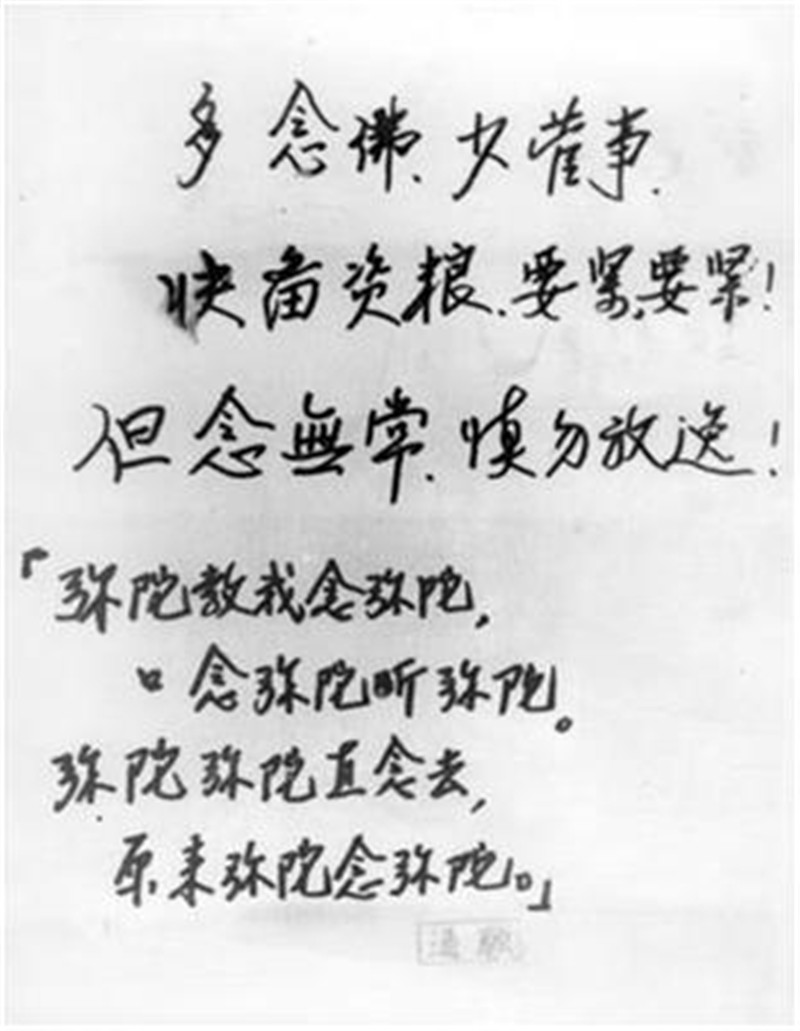 多念佛、少萑事、
快备资粮、要紧要紧！
但念無常、慎勿放逸！
「弥陀教我念弥陀，
口念弥陀听弥陀。
弥陀弥陀直念去，
原来弥陀念弥陀。」